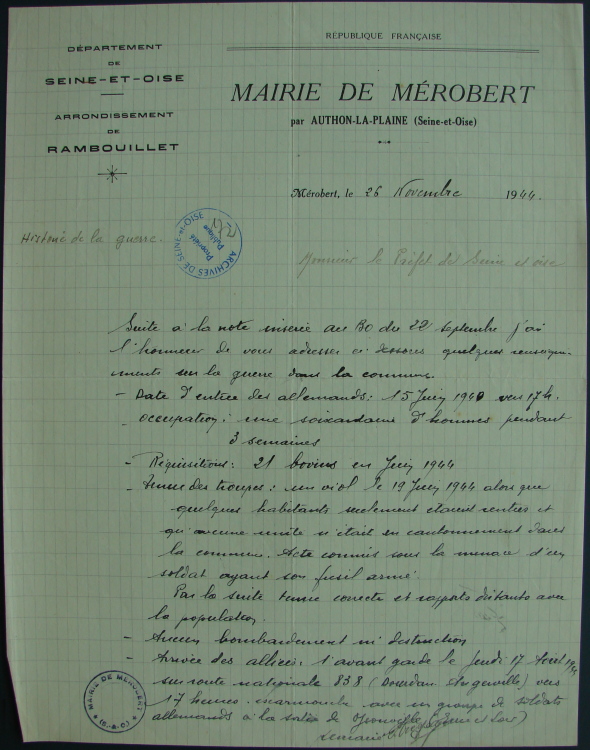 RÉPUBLIQUE FRANÇAISE
DÉPARTEMENT
DE
SEINE-ET-OISE
ARRONDISSEMENT
DE
RAMBOUILLET
MAIRIE DE MÉROBERT
par AUTHON-LA-PLAINE (Seine-et-Oise)
Mérobert, le 26 Novembre 1944.
Histoire de la guerre.
ARCHIVES DE SEINE-et-OISE
Propriété
Publique
Monsieur le Préfet de Seine et oise
Suite à la note insérée au BO du 22 septembre j'ai
l'honneur de vous adresser ci dessous quelques renseigne-
ments sur la guerre dans la commune.
- Date d'entrée des allemands: 15 Juin 1940 vers 17h.
- occupation: une soixantaine d'hommes pendant
3 semaines
- Réquisitions: 21 bovins en Juin 1944
- tenue des troupes: un viol le 19 Juin 1944 alors que
quelques habitants seulement étaient rentrés et
qu'aucune unité n'était en cantonnement dans
la commune. Acte commis sous la menace d'un
soldat ayant son fusil armé.
Par la suite tenue correcte et rapports distants avec
la population.
- Aucun bombardement ni destruction
- Arrivée des alliés: l'avant garde le Jeudi 17 Août 1944
sur route nationale 838 (Dourdan Angerville) vers
17 heures. escarmouche avec un groupe de soldats
allemands à la sortie de (Seine et Loir)
MAIRIE DE MEROBERT
(S.-&-O.)